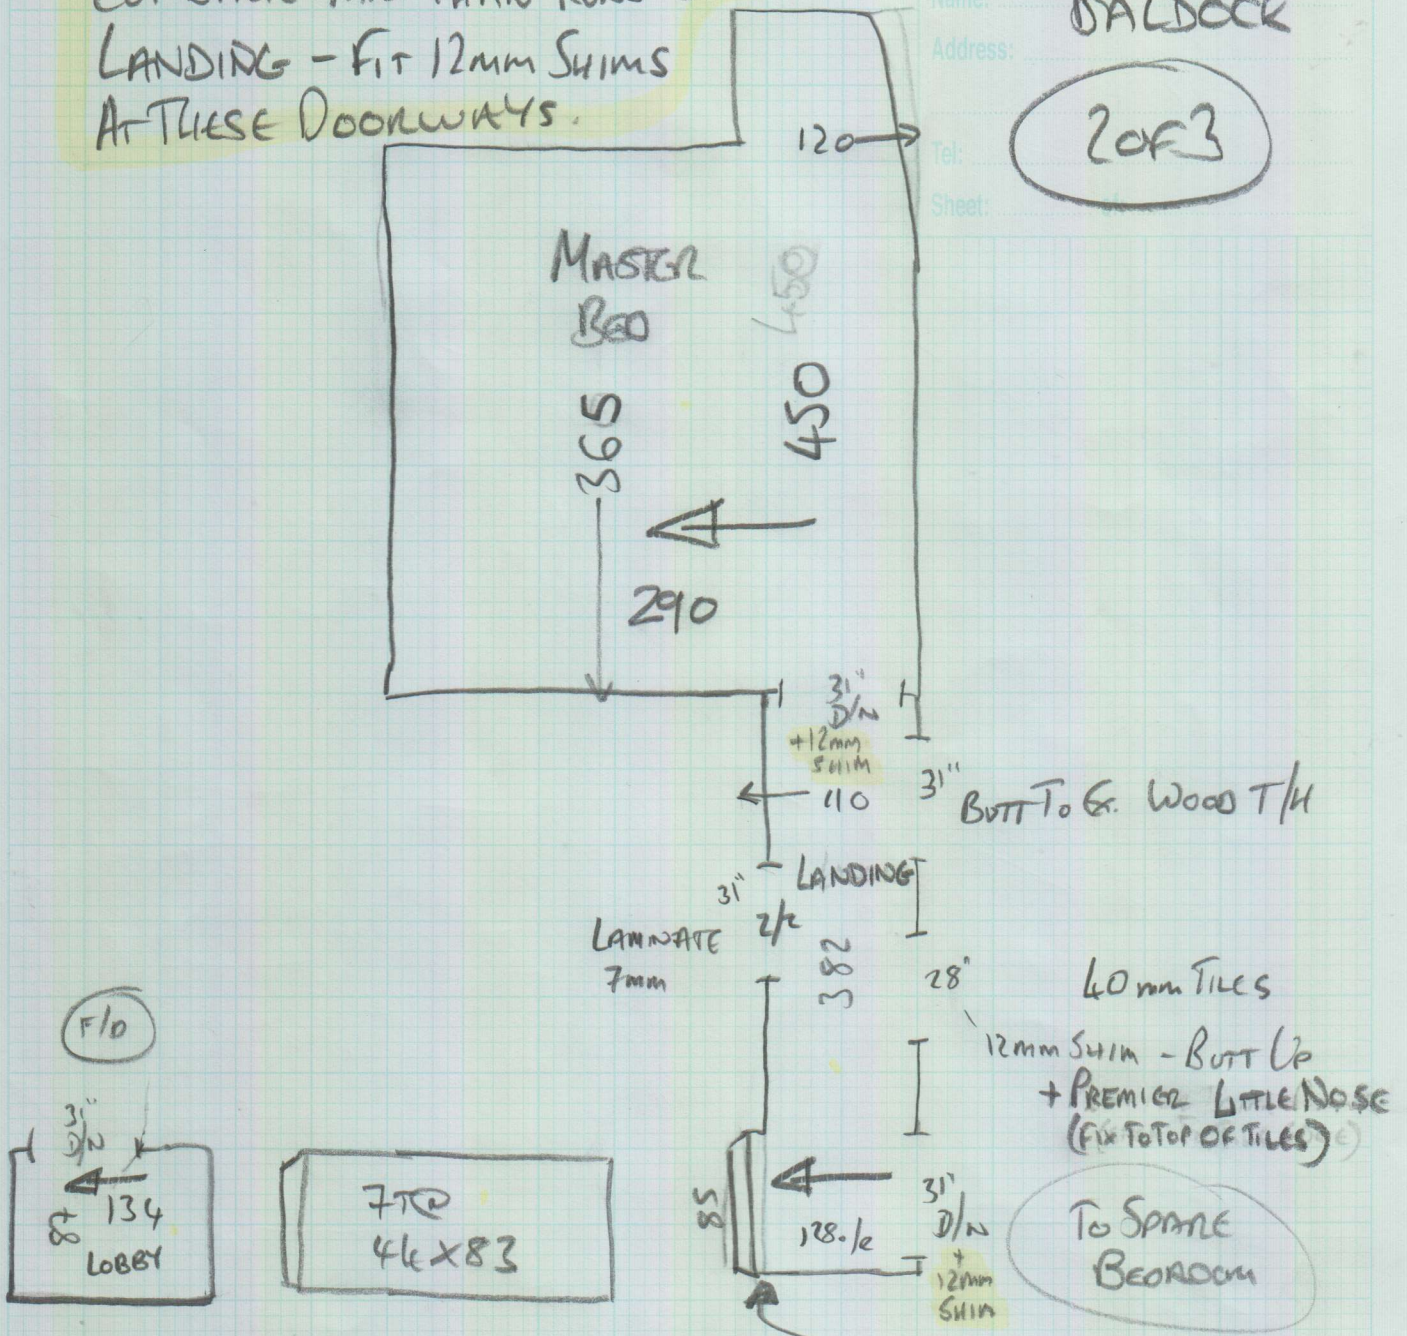 LANDING - FIT 12mm SHIMS
AT THESE DOORWAYS.
Name:
BALDOCK
Address:
2 OF 3
Tel:
Sheet:
120
MASTER
BED
450
450
365
290
31"
D/N
+12mm
SHIM
110
31"
BUTT TO EX. WOOD T/H
LANDING
31"
2/R
LAMINATE
7mm
382
28"
40mm TILES
12mm SHIM - BUTT UP
+ PREMIER LITTLE NOSE
(FIX TO TOP OF TILES)
F/D
31"
D/N
134
LOBBY
7T@
44X83
85
128
31"
D/N
+
12mm
SHIM
TO SPARE
BEDROOM